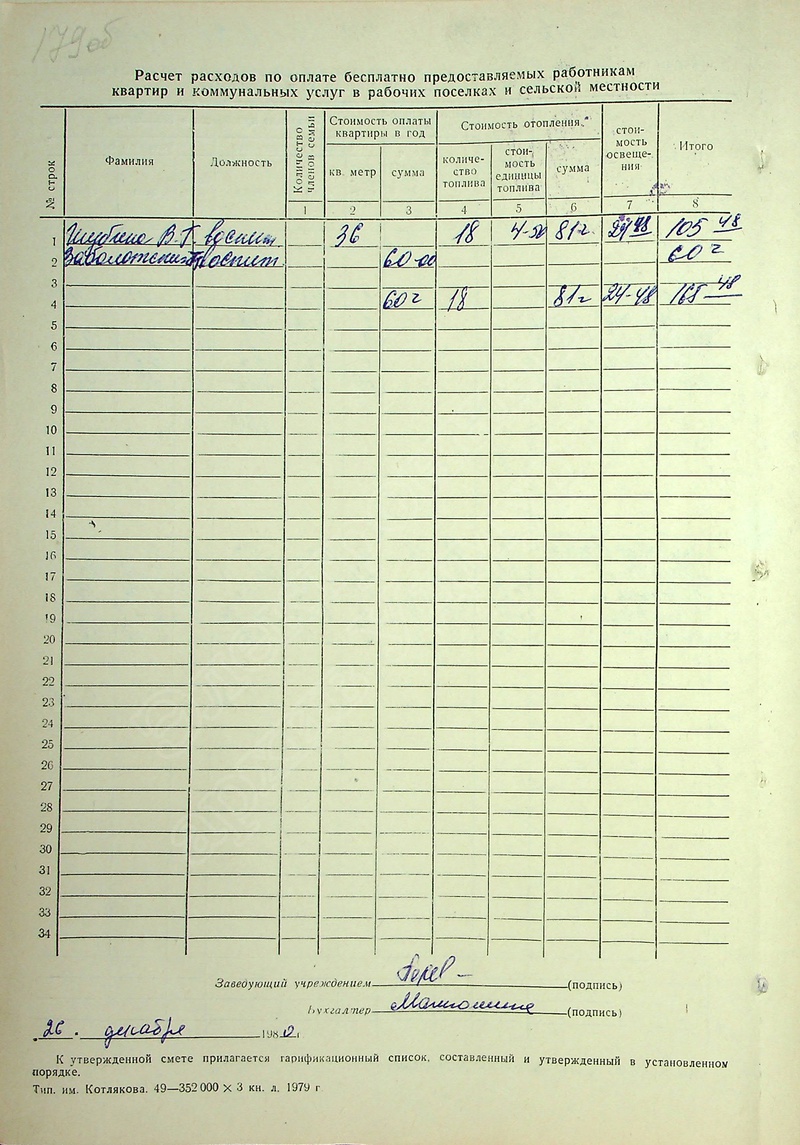 179об
Расчет расходов по оплате бесплатно предоставляемых работникам
квартир и коммунальных услуг в рабочих поселках и сельской местности
№ строк Фамилия Должность Количество членов семьи Стоимость оплаты квартиры в год Стоимость отопления стои-мость освеще-ния Итого
кв. метр сумма количе-ство топлива стои-мость единицы топлива сумма
1 2 3 4 5 6 7 8
1 В.Г. 36 18 4-50 81 24-48 105-48
2 воспит 60-00 60
3
4 60 18 81 24-48 165-48
5
6
7
8
9
10
11
12
13
14
15
16
17
18
19
20
21
22
23
24
25
26
27
28
29
30
31
32
33
34
Заведующий учреждением (подпись)
Бухгалтер (подпись)
26. декабря 1980 г.
К утвержденной смете прилагается тарификационный список, составленный и утвержденный в установленном
порядке.
Тип. им. Котлякова. 49—352 000 X 3 кн. л. 1979 г